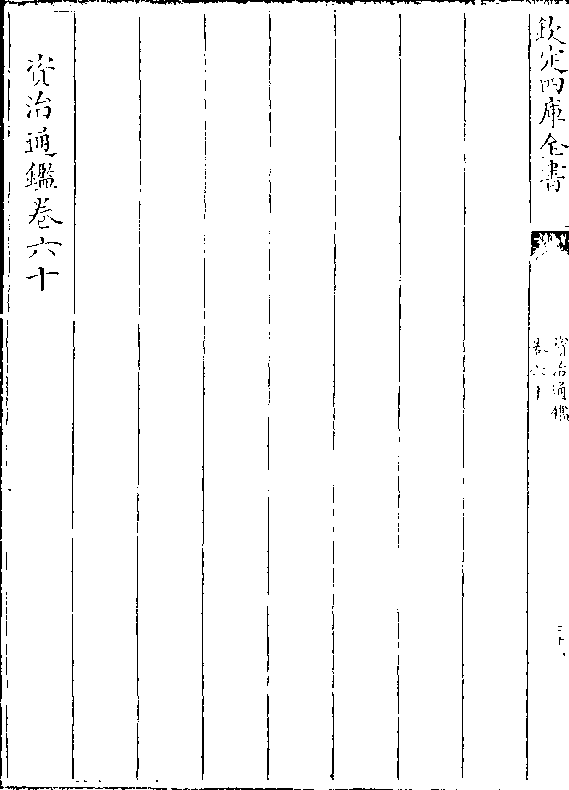 欽定四庫全書
資治通鑑
卷六十
資治通鑑卷六十